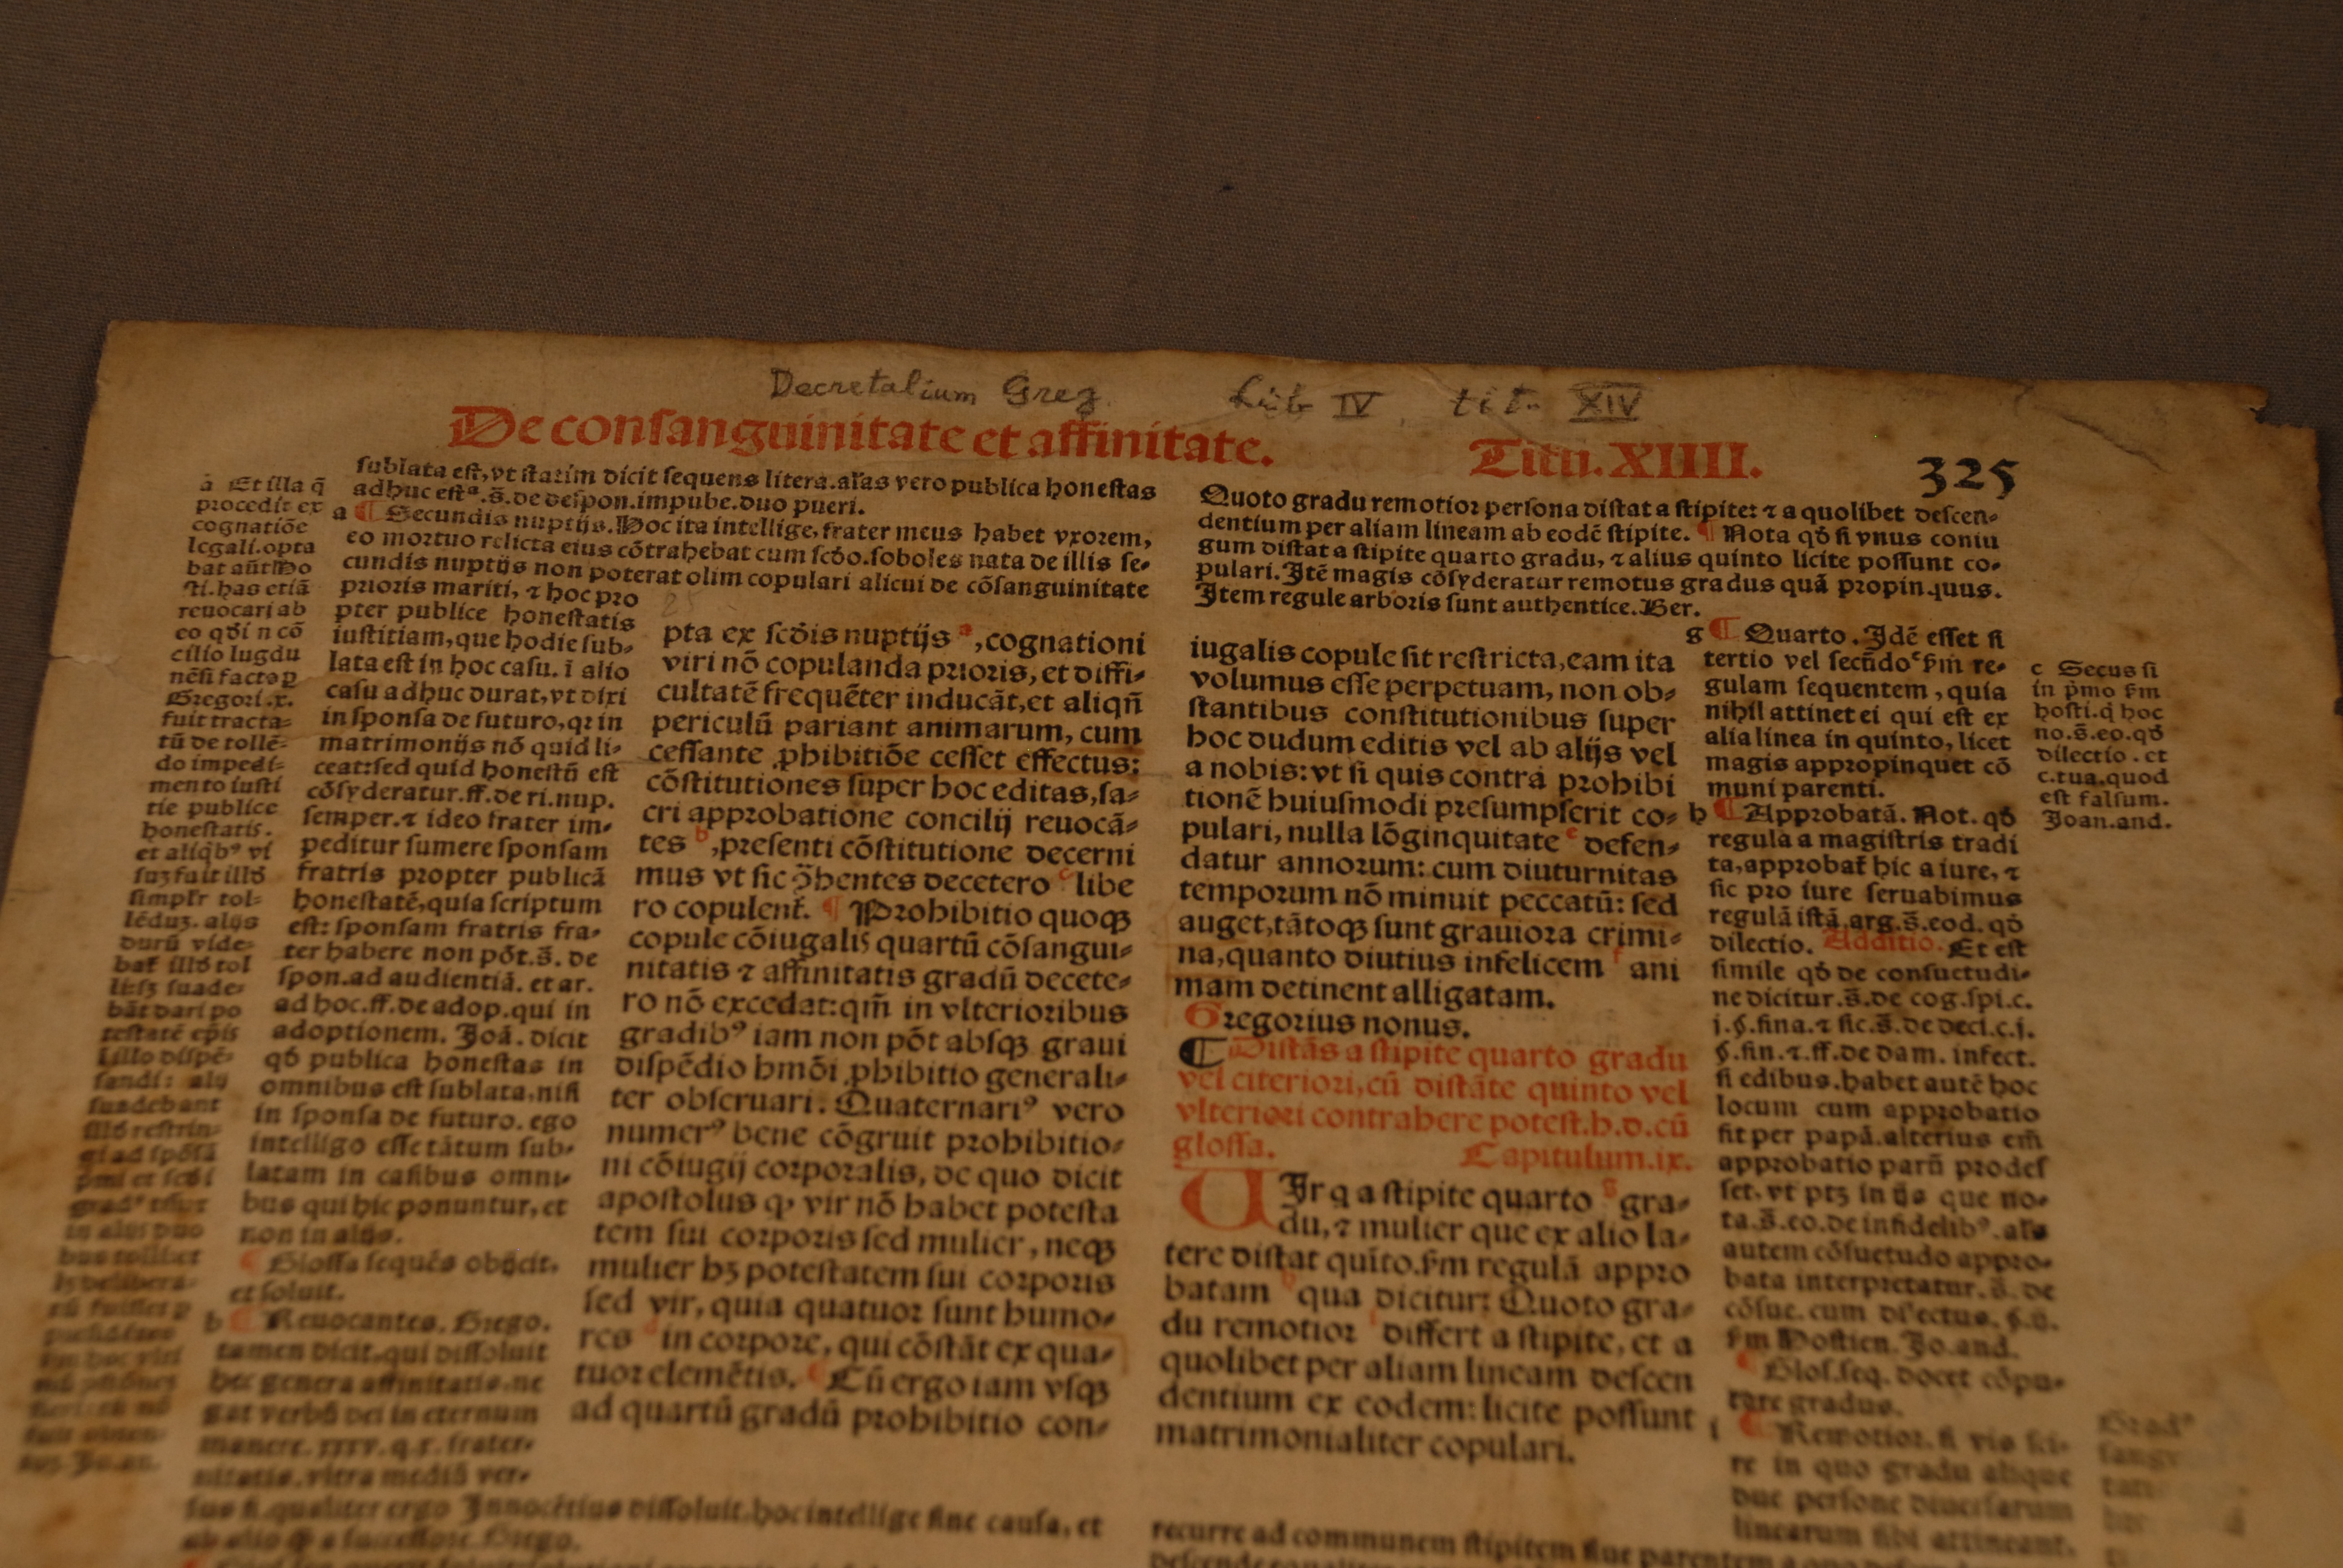 Decretalium Greg. Lib IV. tit. XIV
De consanguinitate et affinitate. Titu. XIIII. 325
ſublata eſt, vt ſtatim dicit ſequens litera. al̄as vero publica honeſtas
adhuc eſt ª. s̄. de deſpon. impube. duo pueri.
a ¶ Secundis nuptijs. Hoc ita intellige, frater meus habet vxorem,
eo mortuo relicta eius cōtrahebat cum ſcd̄o. ſoboles nata de illis ſe-
cundis nuptijs non poterat olim copulari alicui de cōſanguinitate
prioris mariti, ⁊ hoc pro
pter publice honeſtatis
iuſtitiam, que hodie ſub-
lata eſt in hoc caſu. ī alio
caſu adhuc durat, vt dixi
in ſponſa de futuro, qꝛ in
matrimonijs nō quid li-
ceat: ſed quid honeſtū eſt
cōſyderatur. ff. de ri. nup.
ſemper. ⁊ ideo frater im-
peditur ſumere ſponſam
fratris propter publicā
honeſtatē, quia ſcriptum
eſt: ſponſam fratris fra-
ter habere non pōt. s̄. de
ſpon. ad audientiā. et ar.
ad hoc. ff. de adop. qui in
adoptionem. Joā. dicit
qd̄ publica honeſtas in
omnibus eſt ſublata, niſi
in ſponſa de futuro. ego
intelligo eſſe tātum ſub-
latam in caſibus omni-
bus qui hic ponuntur, et
non in alijs.
¶ Gloſſa ſequēs obijcit,
et ſoluit.
b ¶ Reuocantes. Grego.
tamen dicit, qui diſſoluit
hec genera affinitatis. ne
gat verbū dei in eternum
manere. xxxv. q. x. frater-
nitatis. vltra mediū ver-
ſus fi. qualiter ergo Innocētius diſſoluit. hoc intellige ſine cauſa, et
a Et illa q̄
procedit ex
cognatiōe
legali. opta
bat aūt Mo
ſti. has etiā
reuocari ab
eo qd̄ i n cō
cilio lugdu
nēſi facto ꝑ
Gregori. x.
fuit tracta-
tū de tollē-
do impedi-
mento iuſti
tie publice
honeſtatis.
et aliqbꝰ vi
ſuꝫ fuit illd̄
ſimplr̄ tol-
lēduꝫ. alijs
durū vide-
bat̄ illd̄ tol
li: ſꝫ ſuade-
bāt dari po
teſtatē ep̄is
pta ex ſcd̄is nuptijs ª, cognationi
viri nō copulanda prioris, et diffi-
cultatē frequēter inducāt, et aliqn̄
periculū pariant animarum, cum
ceſſante ꝓhibitiōe ceſſet effectus:
cōſtitutiones ſuper hoc editas, ſa-
cri approbatione concilij reuocā-
tes ᵇ, preſenti cōſtitutione decerni
mus vt ſic ↄ̄hentes decetero ᶜ libe
ro copulent̄. ¶ Prohibitio quoqꝫ
copule cōiugalis quartū cōſangui-
nitatis ⁊ affinitatis gradū decete-
ro nō excedat: qm̄ in vlterioribus
gradibꝰ iam non pōt abſqꝫ graui
diſpēdio hmōi ꝓhibitio generali-
ter obſeruari. Quaternariꝰ vero
numerꝰ bene cōgruit prohibitio-
ni cōiugij corporalis, de quo dicit
apoſtolus ꝙ vir nō habet poteſta
tem ſui corporis ſed mulier, neqꝫ
mulier hꝫ poteſtatem ſui corporis
ſed vir, quia quatuor ſunt humo-
res ᵈ in corpore, qui cōſtāt ex qua-
tuor elemētis. ¶ Cū ergo iam vſqꝫ
ad quartū gradū prohibitio con-
Quoto gradu remotior perſona diſtat a ſtipite: ⁊ a quolibet deſcen-
dentium per aliam lineam ab eodē ſtipite. ¶ Nota qd̄ ſi vnus coniu
gum diſtat a ſtipite quarto gradu, ⁊ alius quinto licite poſſunt co-
pulari. Itē magis cōſyderatur remotus gradus quā propinquus.
Item regule arboris ſunt authentice. Ber.
iugalis copule ſit reſtricta, eam ita
volumus eſſe perpetuam, non ob-
ſtantibus conſtitutionibus ſuper
hoc dudum editis vel ab alijs vel
a nobis: vt ſi quis contra prohibi
tionē huiuſmodi preſumpſerit co-
pulari, nulla lōginquitate ᵉ defen-
datur annorum: cum diuturnitas
temporum nō minuit peccatū: ſed
auget, tātoqꝫ ſunt grauiora crimi-
na, quanto diutius infelicem ᶠ ani
mam detinent alligatam.
Gregorius nonus.
¶ Diſtās a ſtipite quarto gradu
vel citeriori, cū diſtāte quinto vel
vlteriori contrahere poteſt. h. d. cū
gloſſa. Capitulum. ix.
VIr q a ſtipite quarto ᵍ gra-
du, ⁊ mulier que ex alio la-
tere diſtat quīto. ẜm regulā appro
batam ʰ qua dicitur: Quoto gra-
du remotior ⁱ differt a ſtipite, et a
quolibet per aliam lineam deſcen
dentium ex eodem: licite poſſunt
matrimonialiter copulari.
g ¶ Quarto. Idē eſſet ſi
tertio vel ſecūdo ᶜ ẜm re-
gulam ſequentem, quia
nihil attinet ei qui eſt ex
alia linea in quinto, licet
magis appropinquet cō
muni parenti.
h ¶ Approbatā. Not. qd̄
regula a magiſtris tradi
ta, approbat̄ hic a iure, ⁊
ſic pro iure ſeruabimus
regulā iſtā. arg. s̄. eod. qd̄
dilectio. Additio. Et eſt
ſimile qd̄ de conſuetudi-
ne dicitur. s̄. de cog. ſpi. c.
j. §. fina. ⁊ ſic. s̄. de deci. c. j.
§. fin. ⁊. ff. de dam. infect.
ſi edibus. habet autē hoc
locum cum approbatio
fit per papā. alterius em̄
approbatio parū prodeſ
ſet. vt ptꝫ in ijs que no-
ta. s̄. eo. de infidelibꝰ. al̄s
autem cōſuetudo appro-
bata interpretatur. s̄. de
cōſue. cum dilectus.
ẜm Hoſtien. Jo. and.
¶ Gloſ. ſeq. docet cōpu-
tare gradus.
i ¶ Remotior. ſi vis ſci-
re in quo gradu alique
due perſone diuerſarum
linearum ſibi attineant.
c Secus ſi
in p̄mo ẜm
hoſti. q̄ hoc
no. s̄. eo. qd̄
dilectio. et
c. tua. quod
eſt falſum.
Joan. and.
recurre ad communem ſtipitem ſiue parentem a quo